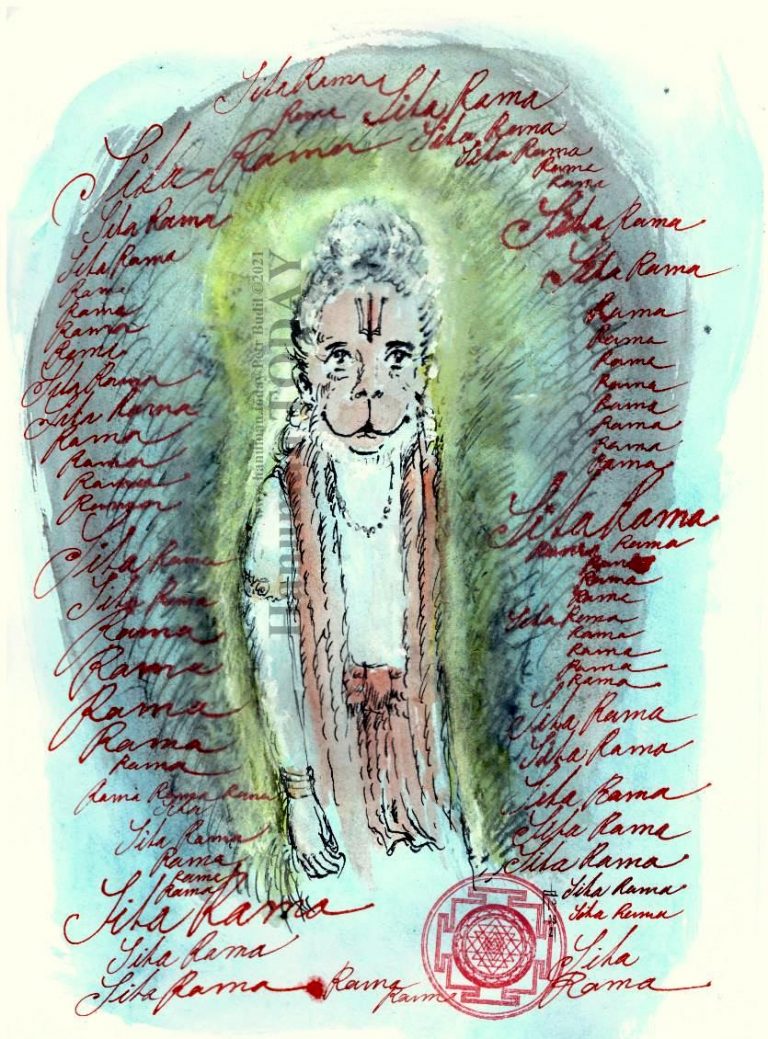 Sita Rama
Rama Sita Rama
Sita Rama
Sita Rama
Sita Rama
Rama
Rama
Sita Rama
Sita Rama
Rama
Rama
Rama
Rama
Sita Rama
Sita Rama
Rama
Rama
Rama
Rama
Sita Rama
Sita Rama
Rama
Rama
Rama
Rama
Rama
Rama Rama Rama
Sita
Sita Rama
Rama
Rama
Rama
Sita Rama
Sita Rama
Sita Rama
Rama
Rama
Sita Rama
Sita Rama
Rama
Rama
Rama
Rama
Rama
Rama
Rama
Rama
Sita Rama
Rama Rama
Rama
Rama
Rama
Sita Rama
Rama
Rama
Rama
Rama
Sita Rama
Sita Rama
Sita Rama
Sita Rama
Sita Rama
Sita Rama
Sita Rama
Sita
Rama
hanuman.today Petr Budil ©2021
Hanuman TODAY